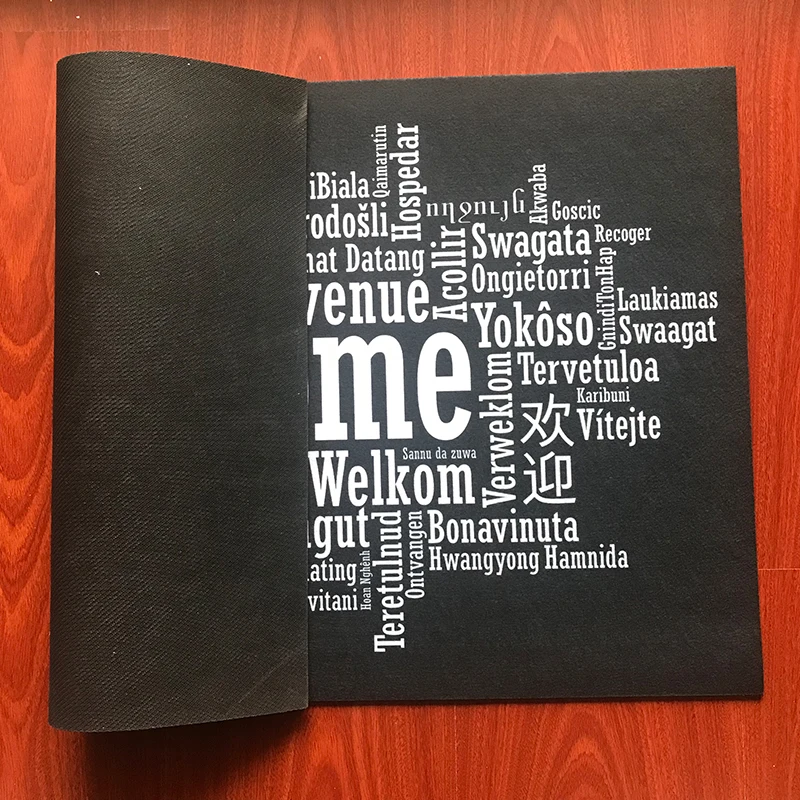 Qaimarutin
Hospedar
iBiala
rodošli
ողջույն
Akwaba
Goscic
Acollir
Swagata
Recoger
nat Datang
Ongietorri
GnindiTonHap
venue
Laukiamas
Yokôso
Swaagat
me
Verweklom
Tervetuloa
Karibuni
欢迎
Vítejte
Sannu da zuwa
Welkom
gut
Teretulnud
Ontvangen
Bonavinuta
Hwangyong Hamnida
ating
Hoan Nghênh
vitani